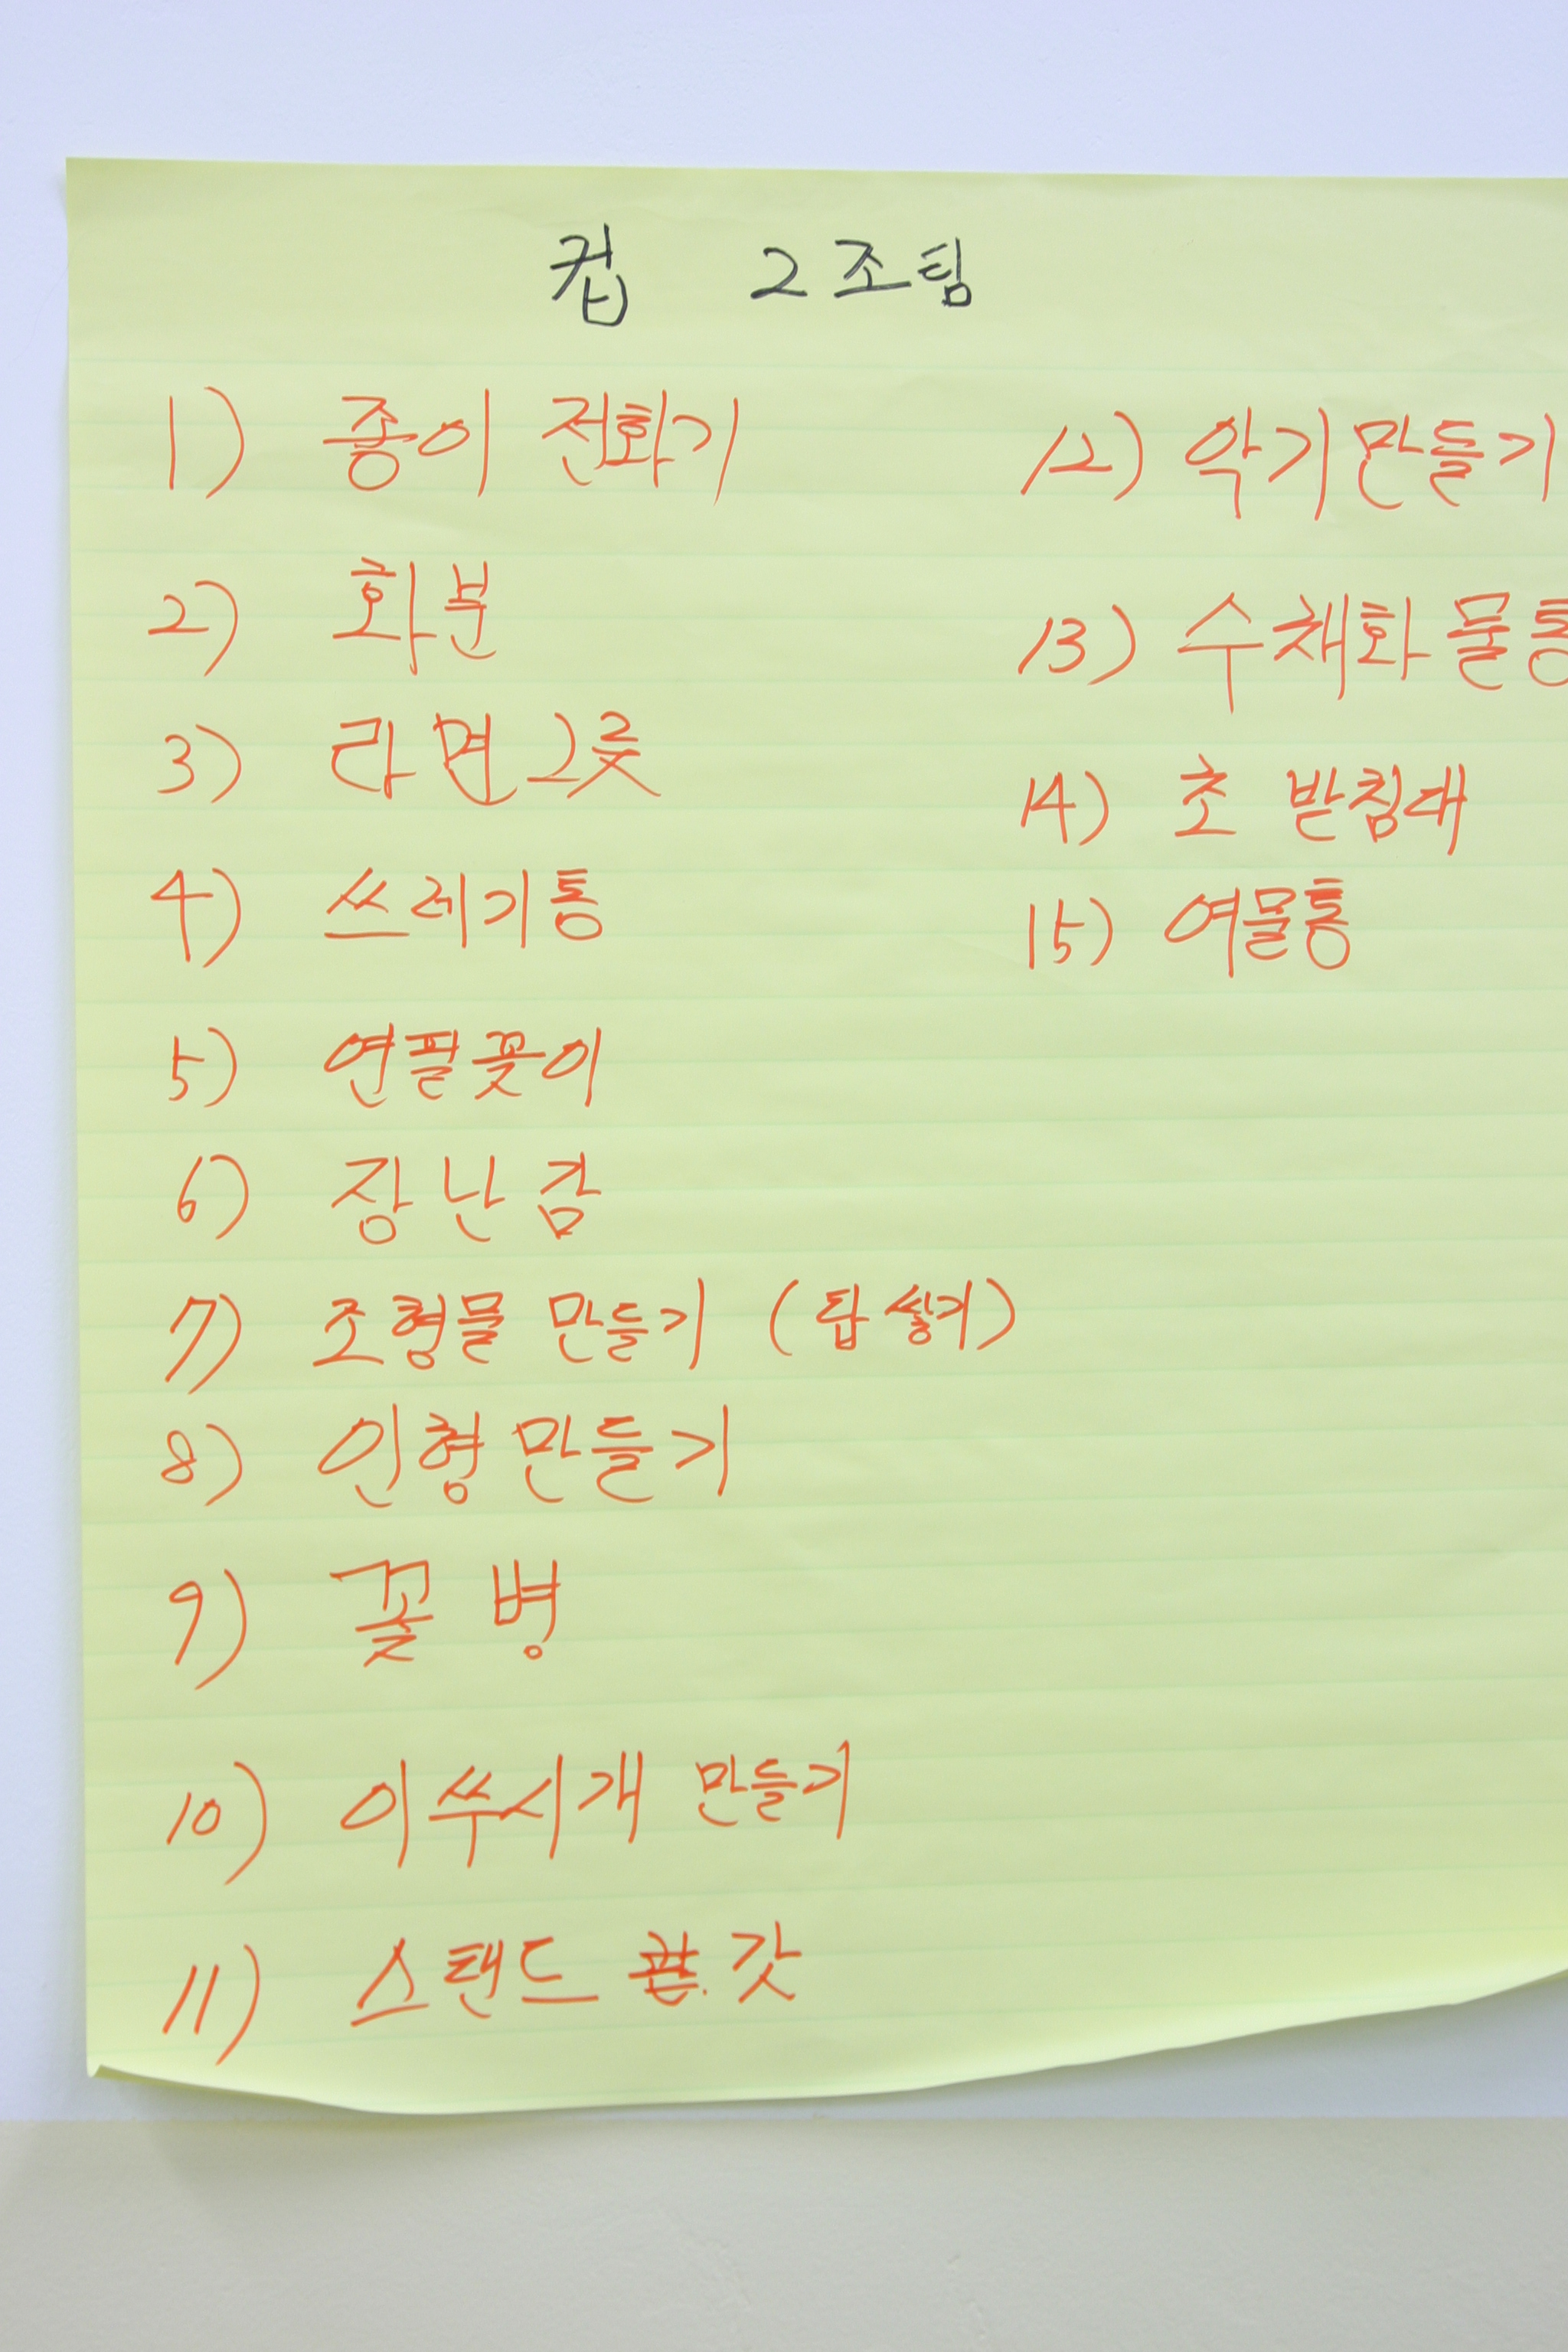 컵 2조팀
1) 종이 전화기
2) 화분
3) 라면그릇
4) 쓰레기통
5) 연필꽂이
6) 장난감
7) 조형물 만들기 (탑 쌓기)
8) 인형만들기
9) 꽃병
10) 이쑤시개 만들기
11) 스탠드 갓
12) 악기만들기
13) 수채화 물통
14) 초 받침대
15) 여물통